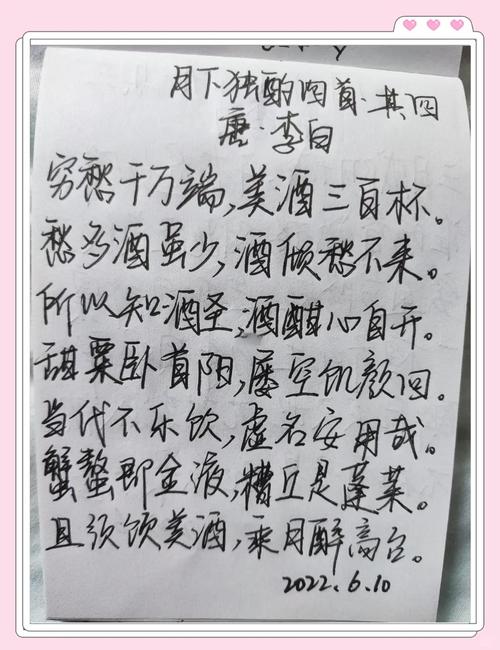 月下独酌四首·其四
唐·李白
穷愁千万端,美酒三百杯。
愁多酒虽少,酒倾愁不来。
所以知酒圣,酒酣心自开。
甜粟卧首阳,屡空饥颜回。
当代不乐饮,虚名安用哉。
蟹螯即金液,糟丘是蓬莱。
且须饮美酒,乘月醉高台。
2022.6.10